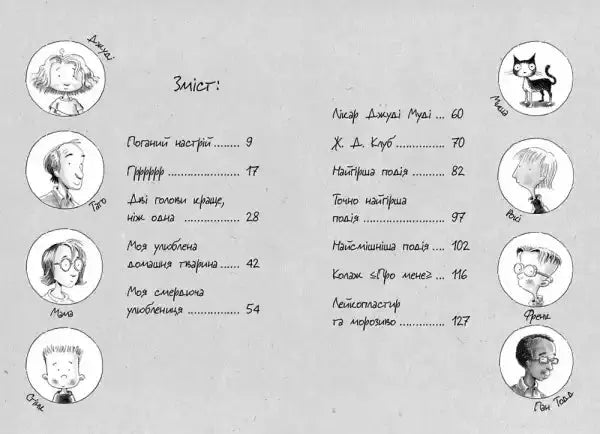 Джуді
Тато
Мама
Стінк
Зміст:
Поганий настрій ........ 9
Ґррррррр ................ 17
Дві голови краще,
ніж одна ............... 28
Моя улюблена
домашня тварина ...... 42
Моя смердюча
улюблениця ................. 54
Лікар Джуді Муді ... 60
Ж. Д. Клуб ............. 70
Найгірша подія ....... 82
Точно найгірша
подія .................... 97
Найсмішніша подія .... 102
Колаж «Про мене» ... 116
Лейкопластир
та морозиво ............ 127
Миша
Рокі
Френк
Пан Тодд